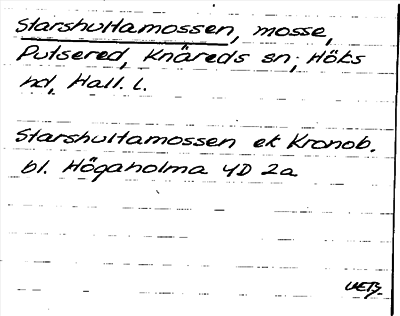 Starshultamossen, mosse,
Putsered, Knäreds sn; Höks
hd, Hall. l.
Starshultamossen ek Kronob.
bl. Högaholma 4D 2a